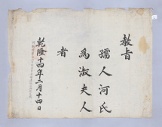 教旨
孺人河氏
爲淑夫人
者
乾隆十四年三月十四日